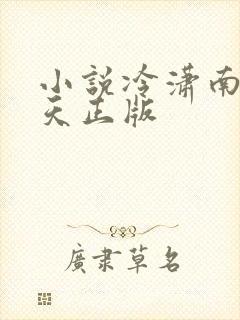 小說冷瀟南
天正版
廣肅草名